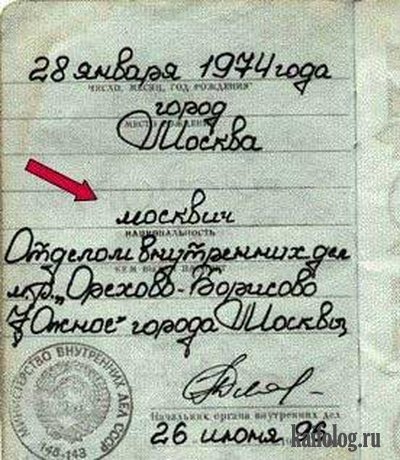 28 января 1974 года
ЧИСЛО, МЕСЯЦ, ГОД РОЖДЕНИЯ
город
МЕСТО РОЖДЕНИЯ
Москва
москвич
НАЦИОНАЛЬНОСТЬ
Отделом внутренних дел
КЕМ ВЫДАН ПАСПОРТ
м.р. „Орехово-Борисово
Южное" города Москвы
МИНИСТЕРСТВО ВНУТРЕННИХ ДЕЛ СССР
148-143
Начальник органа внутренних дел
26 июня 96
kaifolog.ru